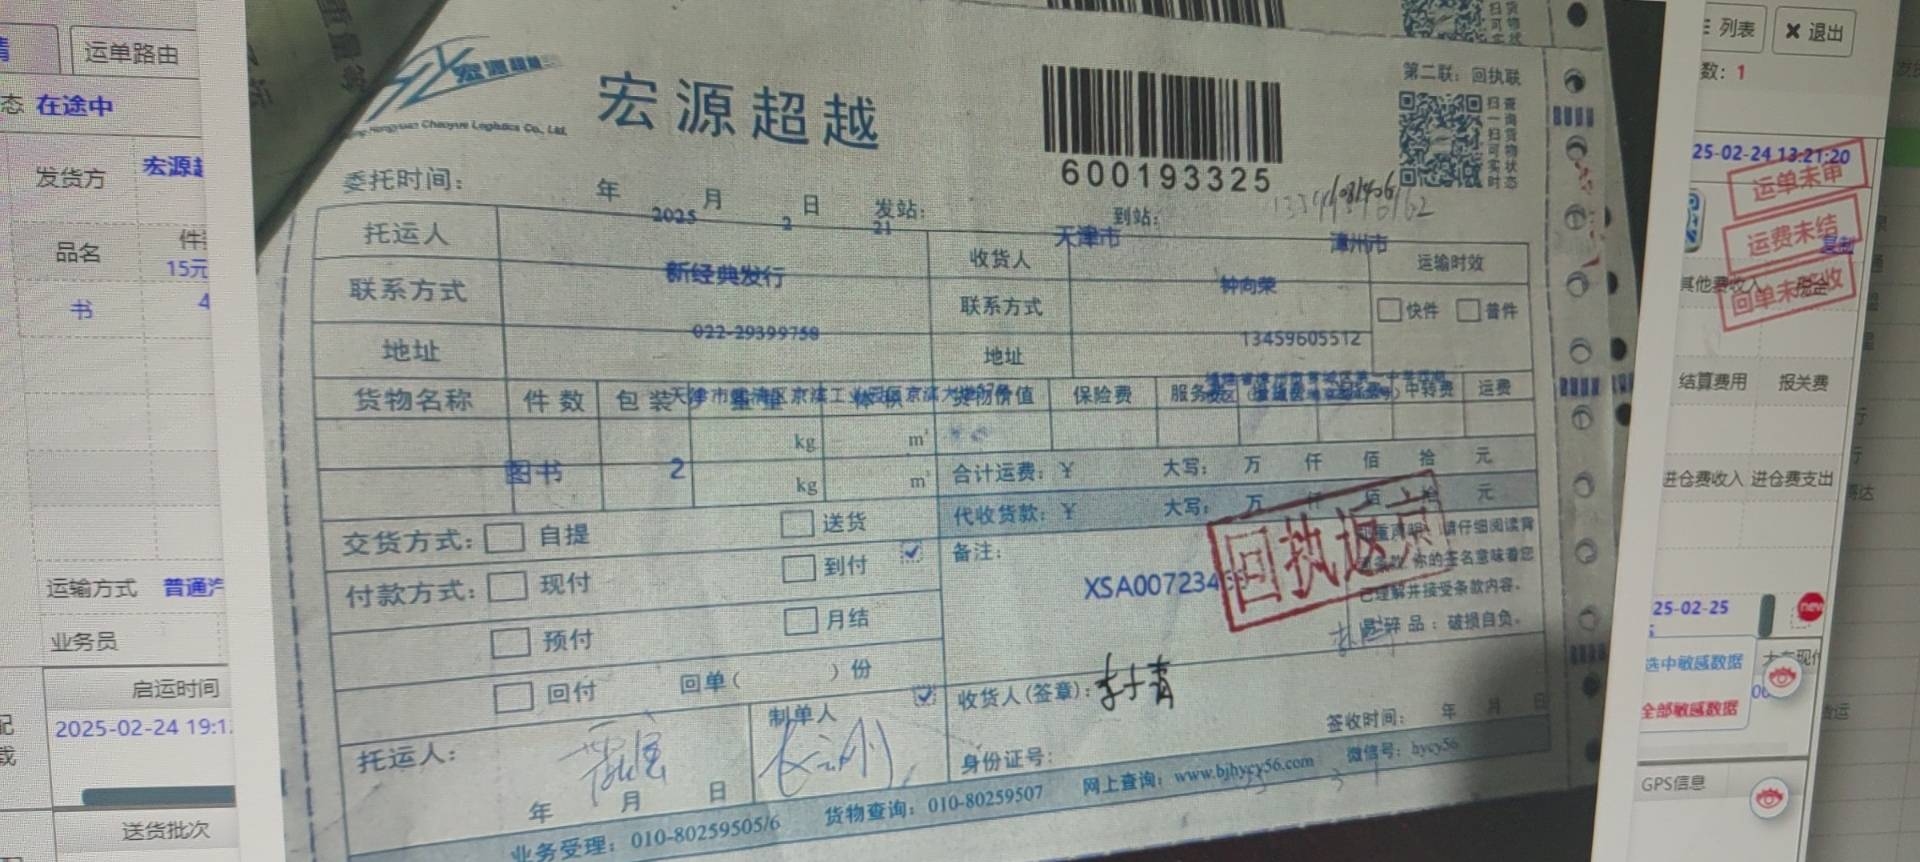 运单路由
在途中
发货方
品名
15元
书
运输方式
业务员
启运时间
2025-02-24 19:1
送货批次
宏源超越
600193325
第二联：回执联
扫一扫可实时
查询货物状态
委托时间： 年 月 日 发站： 到站：
2025 2 21 天津市 漳州市
托运人 新经典发行 收货人 钟向荣 运输时效
联系方式 022-29399758 联系方式 13459605512 快件 普件
地址 地址
货物名称 件数 包装 保险费 中转费 运费
kg m³
图书 2 kg m³
合计运费：￥ 大写： 万 仟 佰 拾 元
代收货款：￥ 大写： 万 仟 佰 拾 元
交货方式： 自提 送货
付款方式： 现付 到付
预付 月结
回付 回单（ ）份
备注：
XSA007234
回执返京
请仔细阅读背
你的签名意味着您
已理解并接受条款内容。
易碎品：破损自负。
收货人(签章)：
签收时间： 年 月 日
身份证号：
托运人：
制单人
年 月 日
业务受理：010-80259505/6 货物查询：010-80259507 网上查询：www.bjhycy56.com 微信号：hycy56
列表
退出
数：1
25-02-24 13:21:20
运单未审
运费未结
复制
其他费收入
结算费用 报关费
进仓费收入 进仓费支出
25-02-25
new
选中敏感数据
全部敏感数据
GPS信息